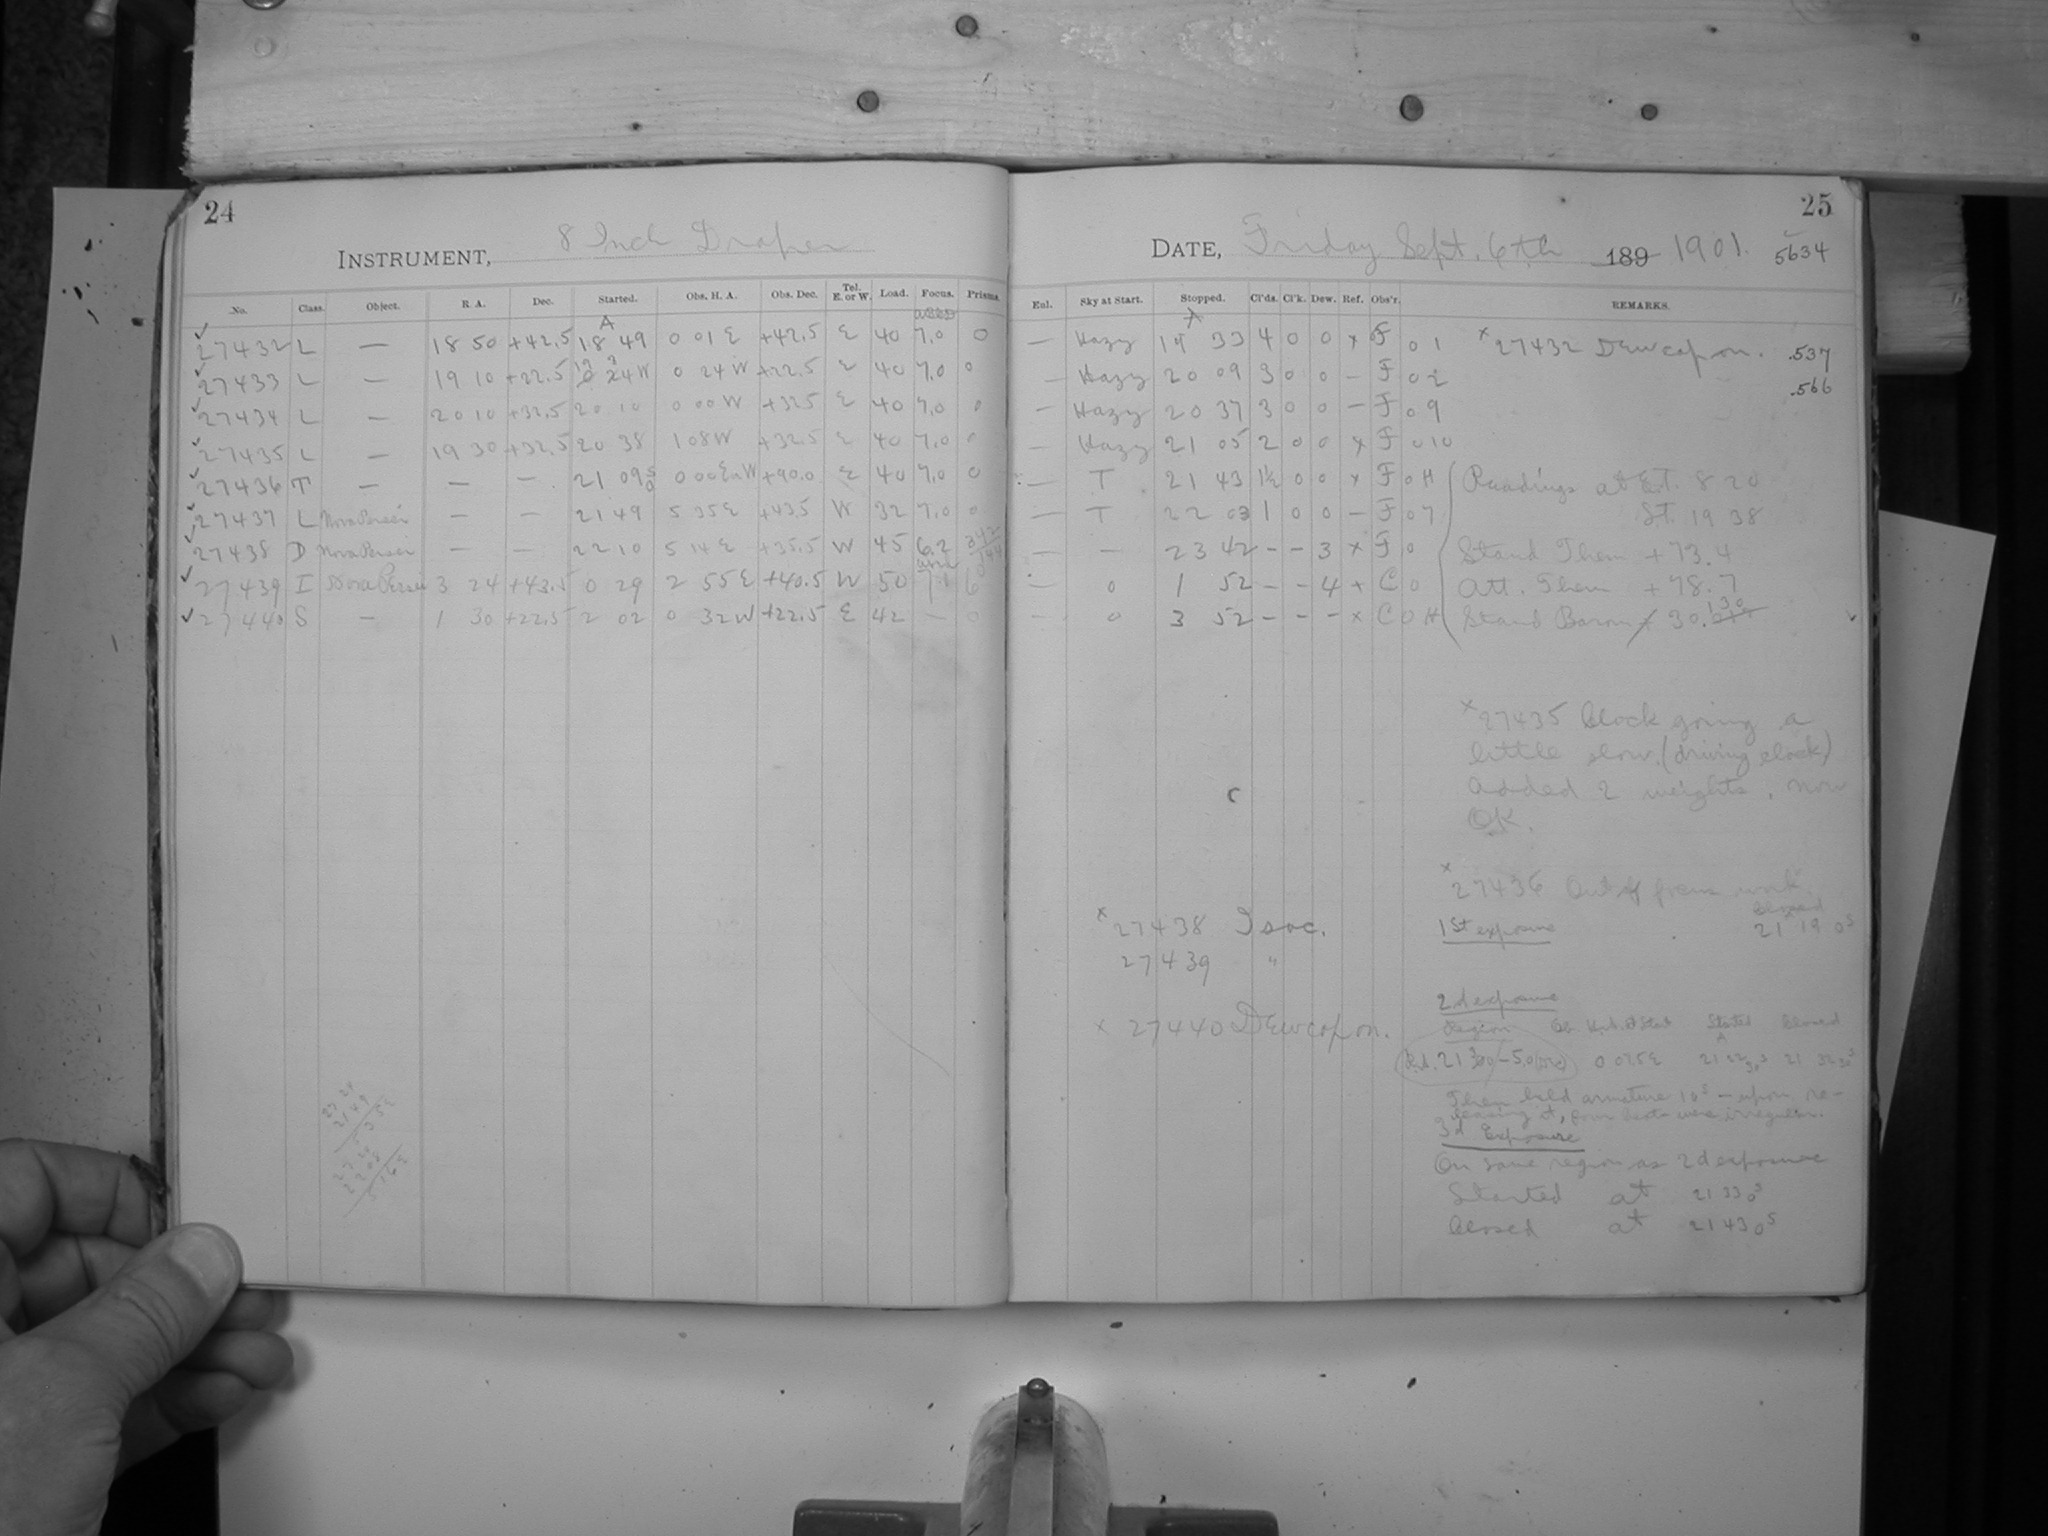 24
INSTRUMENT, 8 Inch Draper
No. Class. Object. R. A. Dec. Started. Obs. H. A. Obs. Dec. Tel. E. or W. Load. Focus. Prisms.
27432 L — 18 50 +42.5 18 49 0 01 E +42.5 E 40 7.0 0
27433 L — 19 10 +22.5 0 24 W +22.5 E 40 7.0 0
27434 L — 20 10 +32.5 20 10 0 00 W +32.5 E 40 7.0 0
27435 L — 19 30 +32.5 20 38 1 08 W +32.5 E 40 7.0 0
27436 T — — — 21 09 0 00 E W +90.0 E 40 7.0 0
27437 L Nova Persei — — 21 49 5 35 E +43.5 W 32 7.0 0
27438 D Nova Persei — — 22 10 5 14 E +35.5 W 45 6.2
27439 I Nova Persei 3 24 +43.5 0 29 2 55 E +40.5 W 50 7.1 6
27440 S — 1 30 +22.5 2 02 0 32 W +22.5 E 42 — 0
25
DATE, Friday Sept. 6th 189 1901. 5634
Eul. Sky at Start. Stopped. Cl'ds. Cl'k. Dew. Ref. Obs'r. REMARKS.
— Hazy 19 33 4 0 0 x F 0 1 x 27432 Dewcap on. .537
— Hazy 20 09 3 0 0 — F 0 2 .566
— Hazy 20 37 3 0 0 — F 0 9
— Hazy 21 05 2 0 0 x F 0 10
— T 21 43 1½ 0 0 x F 0 H Readings at E.T. 8 20
— T 22 03 1 0 0 — F 0 7 St. 19 38
— — 23 42 — — 3 x F 0 Stand Them + 73.4
— 0 1 52 — — 4 + C 0 Att. Them + 78.7
— 0 3 52 — — — x C 0 H Stand Barom 30.130
x 27435 Clock going a
little slow. (driving clock)
Added 2 weights, now
OK.
x 27436 Out of focus work.
x 27438 Isoc.
27439 "
x 27440 Dewcap on.
1st exposure Closed 21 19 0s
2d exposure
Region Started Closed
Then held armature 10s — upon re-
leasing it, were irregular.
3d Exposure
On same region as 2d exposure
Started at 21 33 0s
Closed at 21 43 0s